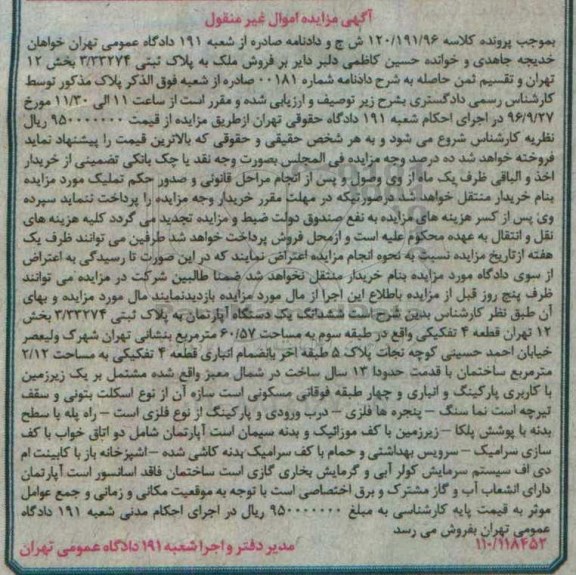 آگهی مزایده اموال غیر منقول
بموجب پرونده کلاسه ۱۲۰/۱۹۱/۹۶ ش ج و دادنامه صادره از شعبه ۱۹۱ دادگاه عمومی تهران خواهان
خدیجه جاهدی و خوانده حسین کاظمی دلبر دایر بر فروش ملک به پلاک ثبتی ۳/۳۳۲۷۴ بخش ۱۲
تهران و تقسیم ثمن حاصله به شرح دادنامه شماره ۰۰۱۸۱ صادره از شعبه فوق الذکر پلاک مذکور توسط
کارشناس رسمی دادگستری بشرح زیر توصیف و ارزیابی شده و مقرر است از ساعت ۱۱ الی ۱۱/۳۰ مورخ
۹۶/۹/۲۷ در اجرای احکام شعبه ۱۹۱ دادگاه حقوقی تهران ازطریق مزایده از قیمت ۹۵۰۰۰۰۰۰۰ ریال
نظریه کارشناس شروع می شود و به هر شخص حقیقی و حقوقی که بالاترین قیمت را پیشنهاد نماید
فروخته خواهد شد ده درصد وجه مزایده فی المجلس بصورت وجه نقد یا چک بانکی تضمینی از خریدار
اخذ و الباقی ظرف یک ماه از وی وصول و پس از انجام مراحل قانونی و صدور حکم تملیک مورد مزایده
بنام خریدار منتقل خواهد شد درصورتیکه در مهلت مقرر خریدار وجه مزایده را پرداخت ننماید سپرده
وی پس از کسر هزینه های مزایده به نفع صندوق دولت ضبط و مزایده تجدید می گردد کلیه هزینه های
نقل و انتقال به عهده محکوم علیه است و ازمحل فروش پرداخت خواهد شد طرفین می توانند ظرف یک
هفته ازتاریخ مزایده نسبت به نحوه انجام مزایده اعتراض نمایند که در این صورت تا رسیدگی به اعتراض
از سوی دادگاه مورد مزایده بنام خریدار منتقل نخواهد شد ضمنا طالبین شرکت در مزایده می توانند
ظرف پنج روز قبل از مزایده باطلاع این اجرا از مال مورد مزایده بازدیدنمایند مال مورد مزایده و بهای
آن طبق نظر کارشناس بدین شرح است ششدانگ یک دستگاه آپارتمان به پلاک ثبتی ۳/۳۳۲۷۴ بخش
۱۲ تهران قطعه ۴ تفکیکی واقع در طبقه سوم به مساحت ۶۰/۵۷ مترمربع بنشانی تهران شهرک ولیعصر
خیابان احمد حسینی کوچه نجات پلاک ۵ طبقه اخر بانضمام انباری قطعه ۴ تفکیکی به مساحت ۲/۱۲
مترمربع ساختمان با قدمت حدودا ۱۳ سال ساخت در شمال معبر واقع شده مشتمل بر یک زیرزمین
با کاربری پارکینگ و انباری و چهار طبقه فوقانی مسکونی است سازه آن از نوع اسکلت بتونی و سقف
تیرچه است نما سنگ – پنجره ها فلزی – درب ورودی و پارکینگ از نوع فلزی است – راه پله با سطح
بدنه با پوشش پلکا – زیرزمین با کف موزائیک و بدنه سیمان است آپارتمان شامل دو اتاق خواب با کف
سازی سرامیک – سرویس بهداشتی و حمام با کف سرامیک بدنه کاشی شده – اشپزخانه باز با کابینت ام
دی اف سیستم سرمایش کولر آبی و گرمایش بخاری گازی است ساختمان فاقد اسانسور است آپارتمان
دارای انشعاب آب و گاز مشترک و برق اختصاصی است با توجه به موقعیت مکانی و زمانی و جمع عوامل
موثر به قیمت پایه کارشناسی به مبلغ ۹۵۰۰۰۰۰۰۰ ریال در اجرای احکام مدنی شعبه ۱۹۱ دادگاه
عمومی تهران بفروش می رسد
۱۱۰/۱۱۸۴۵۳ مدیر دفتر و اجرا شعبه ۱۹۱ دادگاه عمومی تهران